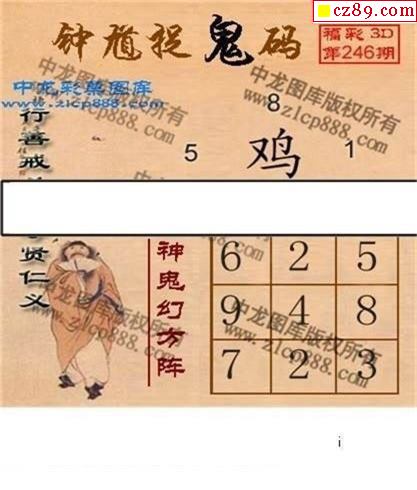 cz89.com
钟馗捉鬼码
福彩3D
第246期
中龙彩票图库
www.zlcp888.com
8
5 鸡 1
行善戒
贤仁义
神鬼幻方阵
6 2 5
9 4 8
7 2 3
中龙图库版权所有
www.zlcp888.com
中龙图库版权所有
www.zlcp888.com
i